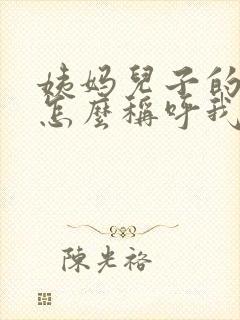 姨妈兒子的
怎麼稱呼我
陳光裕